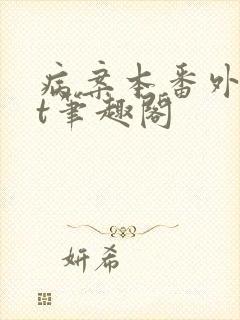 病案本番外
t笔趣阁
妍希